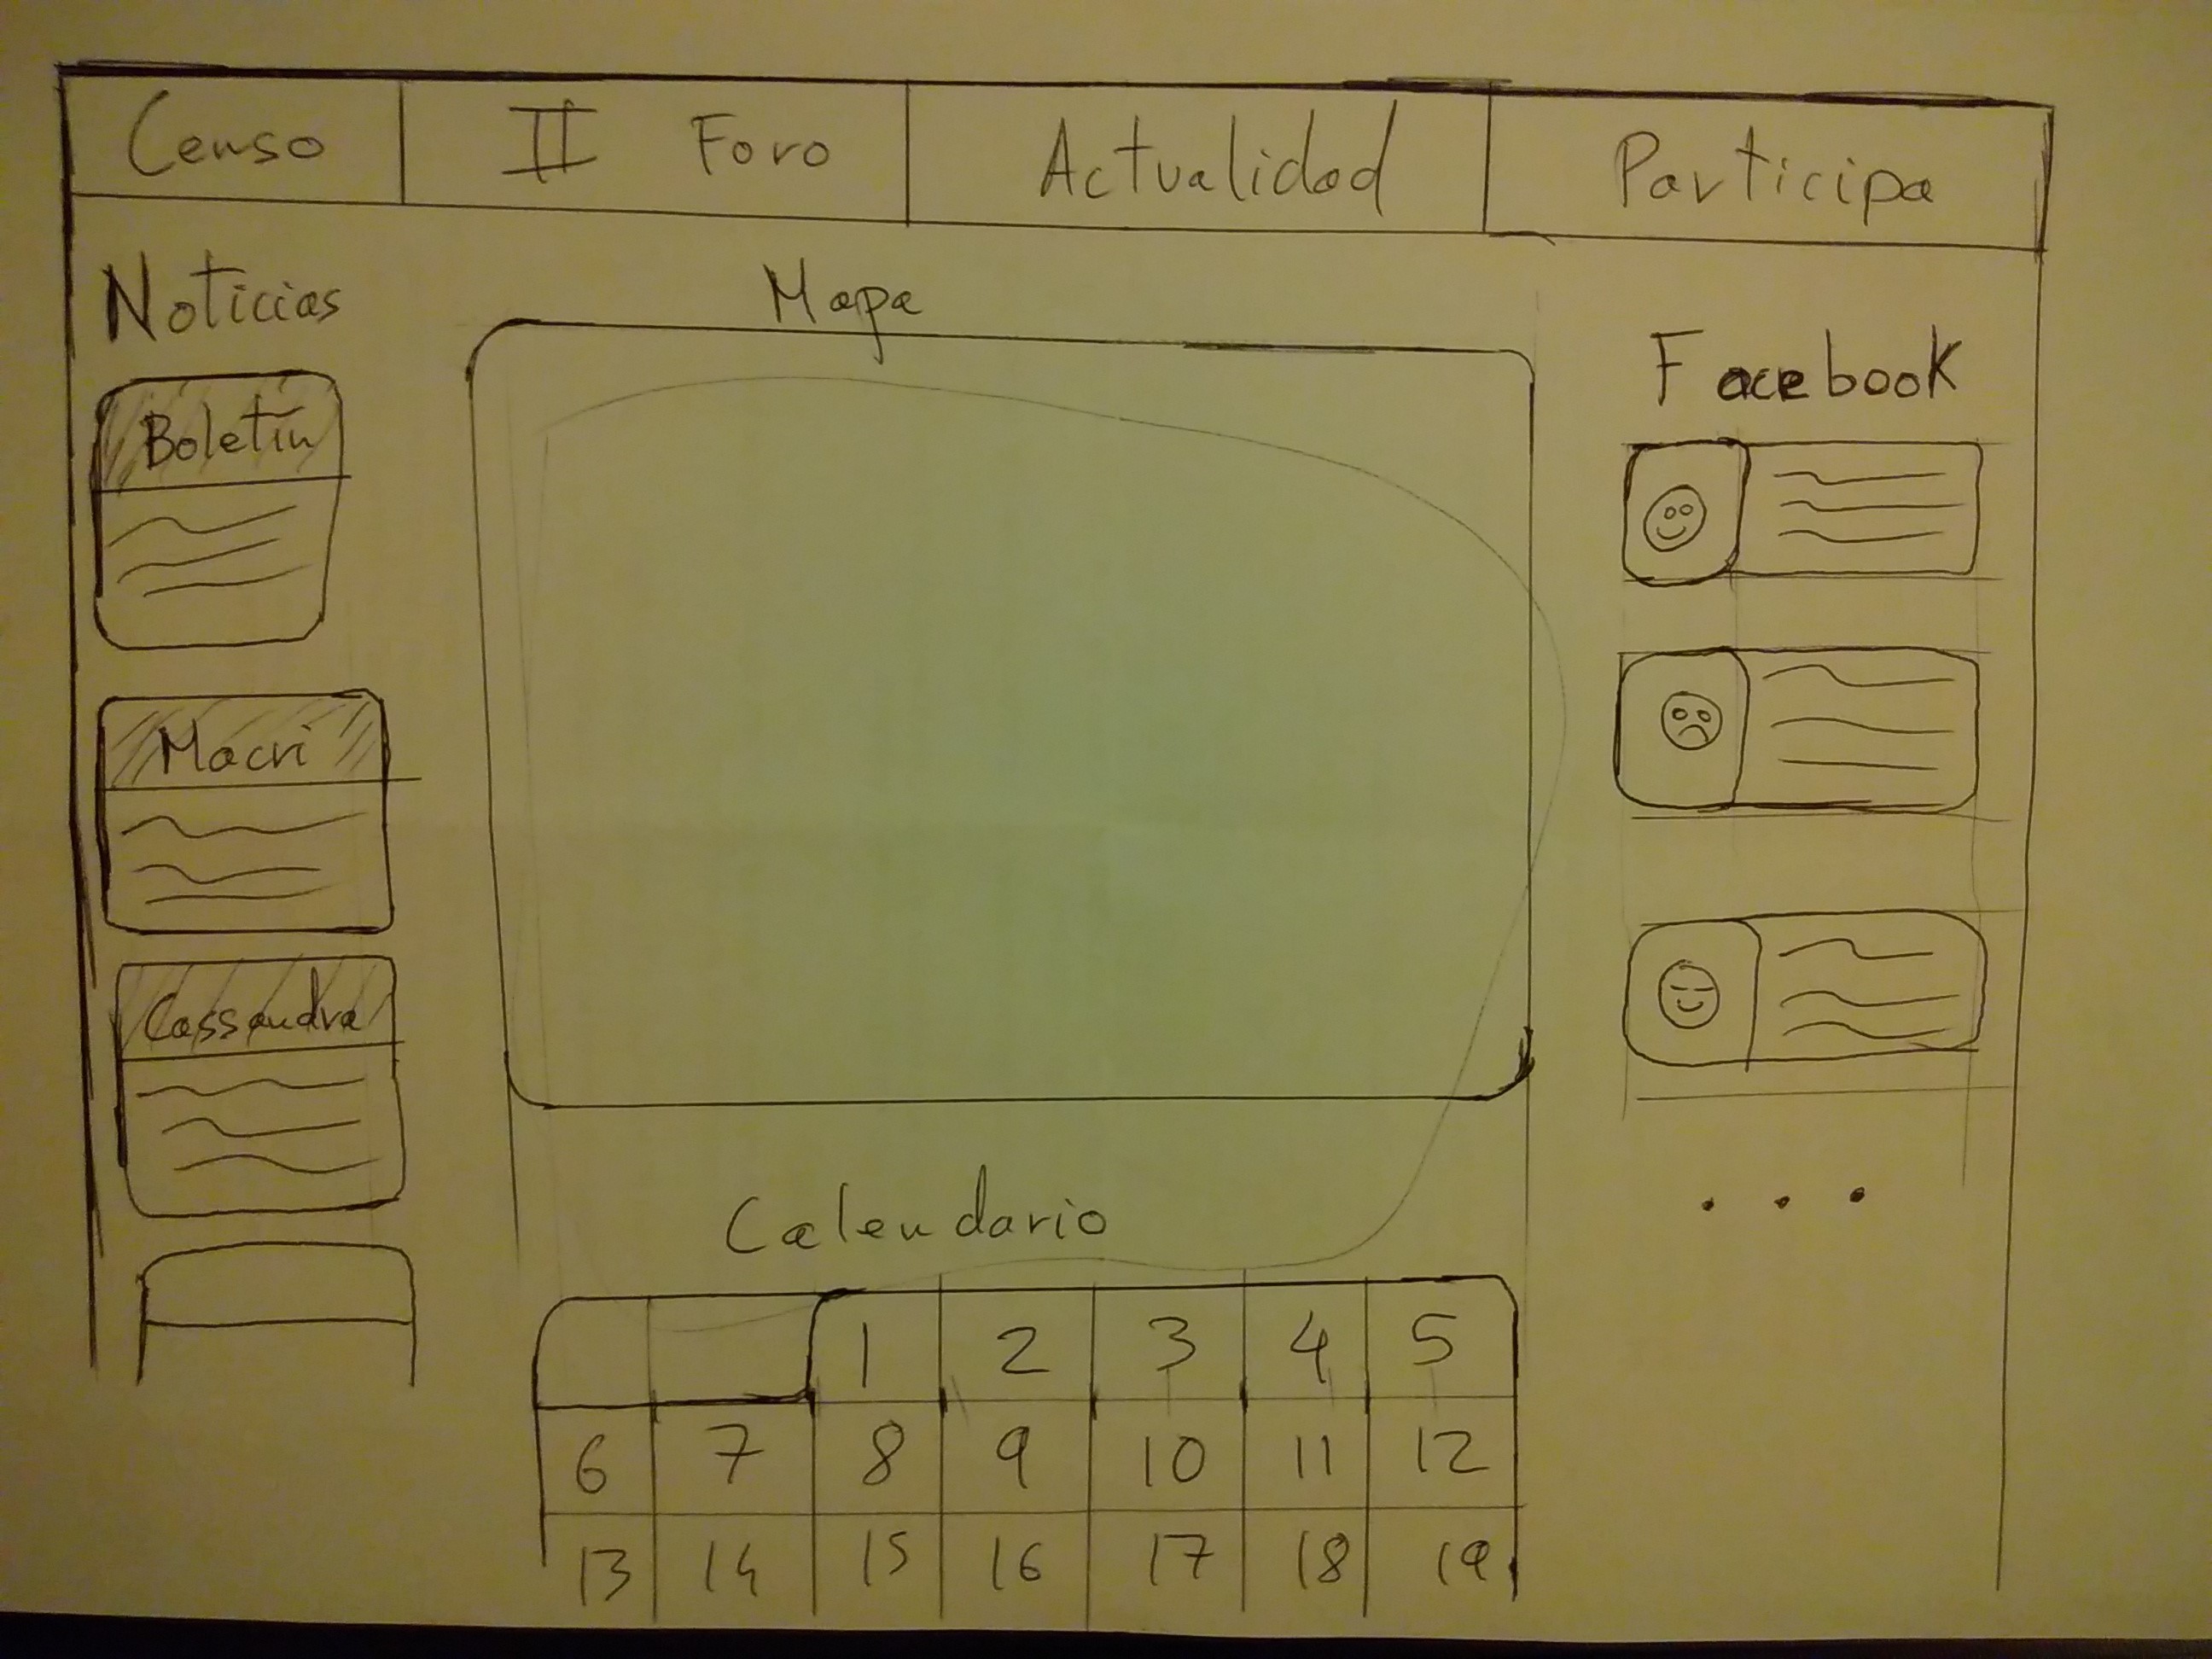 Censo
II Foro
Actualidad
Participa
Noticias
Boletín
Macri
Cassandra
Mapa
Calendario
1 2 3 4 5
6 7 8 9 10 11 12
13 14 15 16 17 18 19
Facebook
. . .